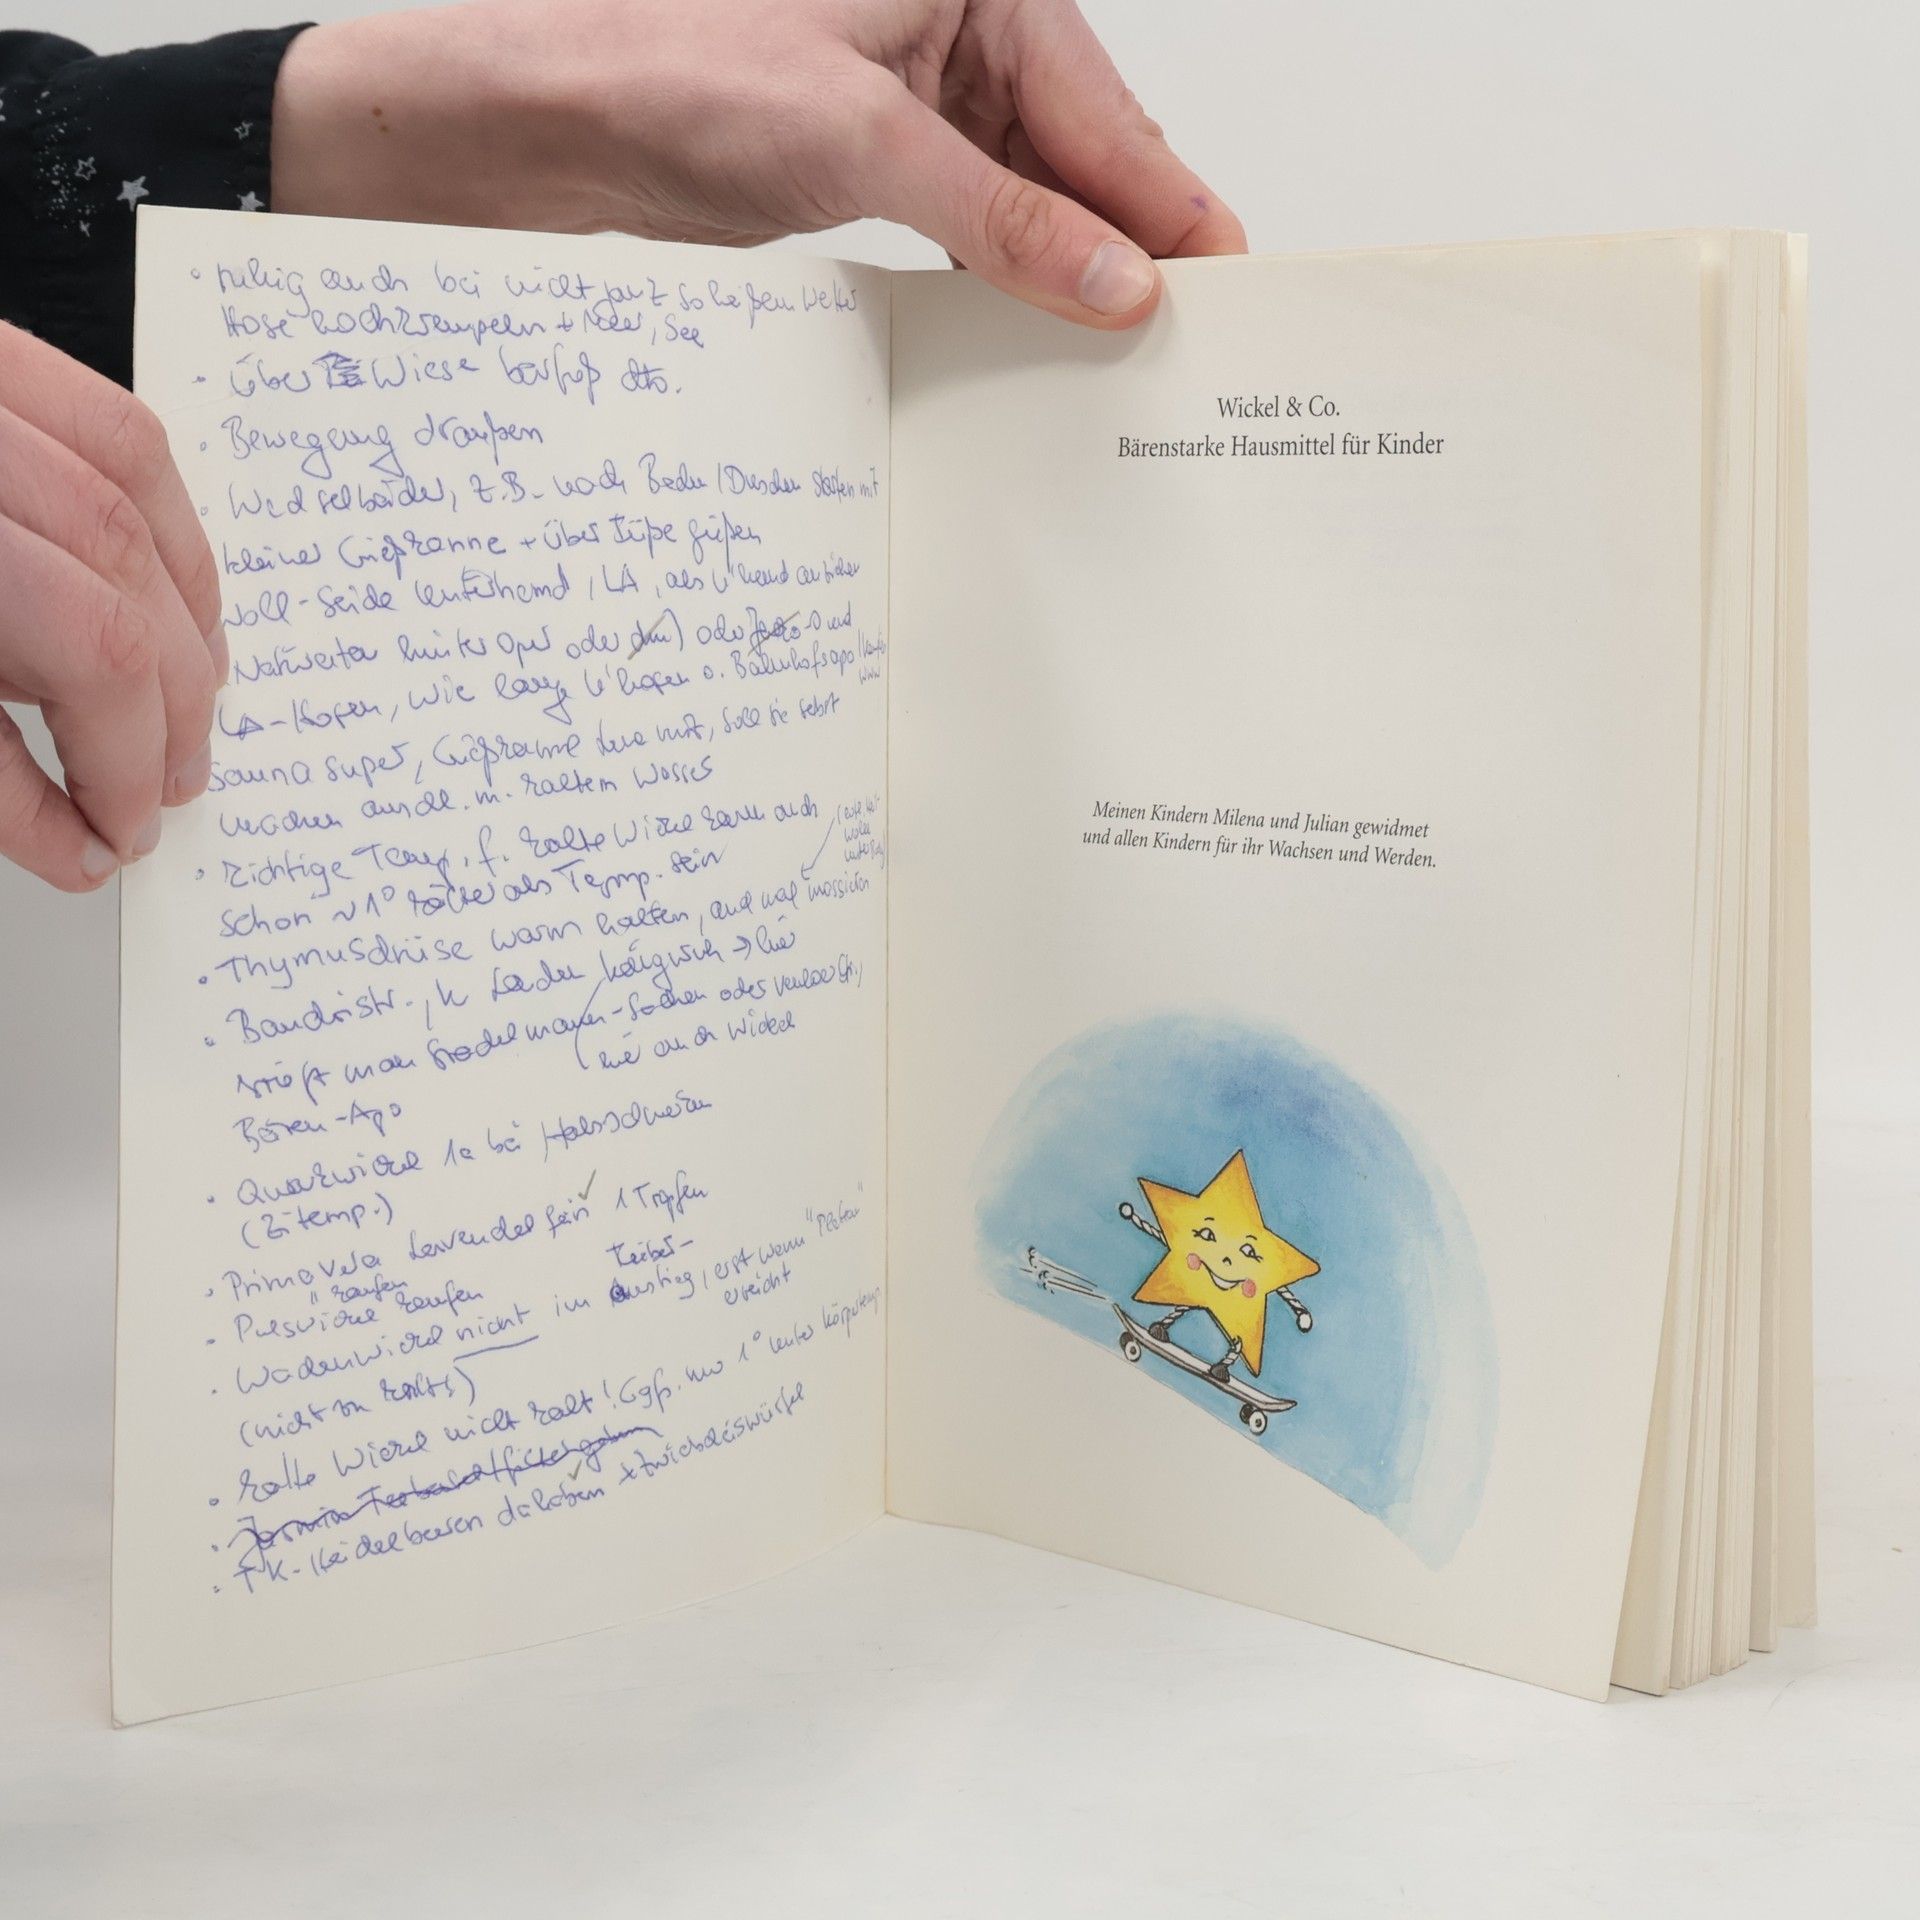 • ruhig auch bei nicht ganz so heißem Wetter
Hose hochkrempeln + Meer, See
• über Wiese barfuß dto.
• Bewegung draußen
• Wechselbäder, z.B. nach Baden / Duschen starten mit
kleiner Gießkanne + über Füße gießen
Woll-Seide Unterhemd, LA, als U'hemd anziehen
Naturwaren hinter Oper oder dm) oder
LA-Hosen, wie lange U'hosen o. Bahnhofsapo
www
Sauna super, Gießkanne mit, soll sie selbst
machen anschl. m. kaltem Wasser
• Richtige Temp. f. kalte Wickel kann auch
schon ~1° kälter als Temp. sein
• Thymusdrüse warm halten, auch mal massieren
• Baaderstr., Laden →hier
kriegt man Stadelmann-Sachen oder
Bären-Apo
hier auch Wickel
• Quarkwickel 1a bei Halsschmerzen
(Zi temp.)
• Primavera Lavendel fein ✓ 1 Tropfen
" kaufen
• Pulswickel kaufen
• Wadenwickel nicht im Fieber-
Anstieg, erst wenn "Plateau"
erreicht
(nicht zu kalt!)
• Kalte Wickel nicht kalt! Ggf. nur 1° unter Körpertemp.
• TK-Heidelbeeren dahaben + Zwiebeleiswürfel
Wickel & Co.
Bärenstarke Hausmittel für Kinder
Meinen Kindern Milena und Julian gewidmet
und allen Kindern für ihr Wachsen und Werden.